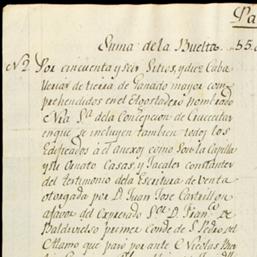 Pa
Suma de la Buelta .. 55.
Nº. Por cincuenta y seis Sitios, y diez Caba
llerias de tierra de Ganado mayor com
prehendidos en el Agostadero Nombrado
Nra Sª. de la Concepcion de
en que se incluyen tambien todos los
Edificados à èl anexos como Son la Capilla
y Su Ornato Casas, y Jacales constantes
del testimonio de la Escritura de Venta
otorgada por D. Juan Jose Castrillon
afavor del Expresado Sor. D. Franco. De
Baldivielso primer Conde de S. Pedro del
Alamo que pasó por ante D. Nicolas